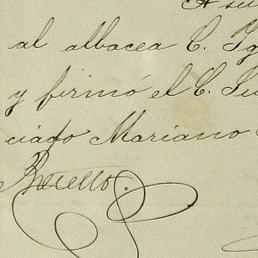 A su
al albacea C. Ig
y firmó el C. Ju
ciado Mariano
Botello.